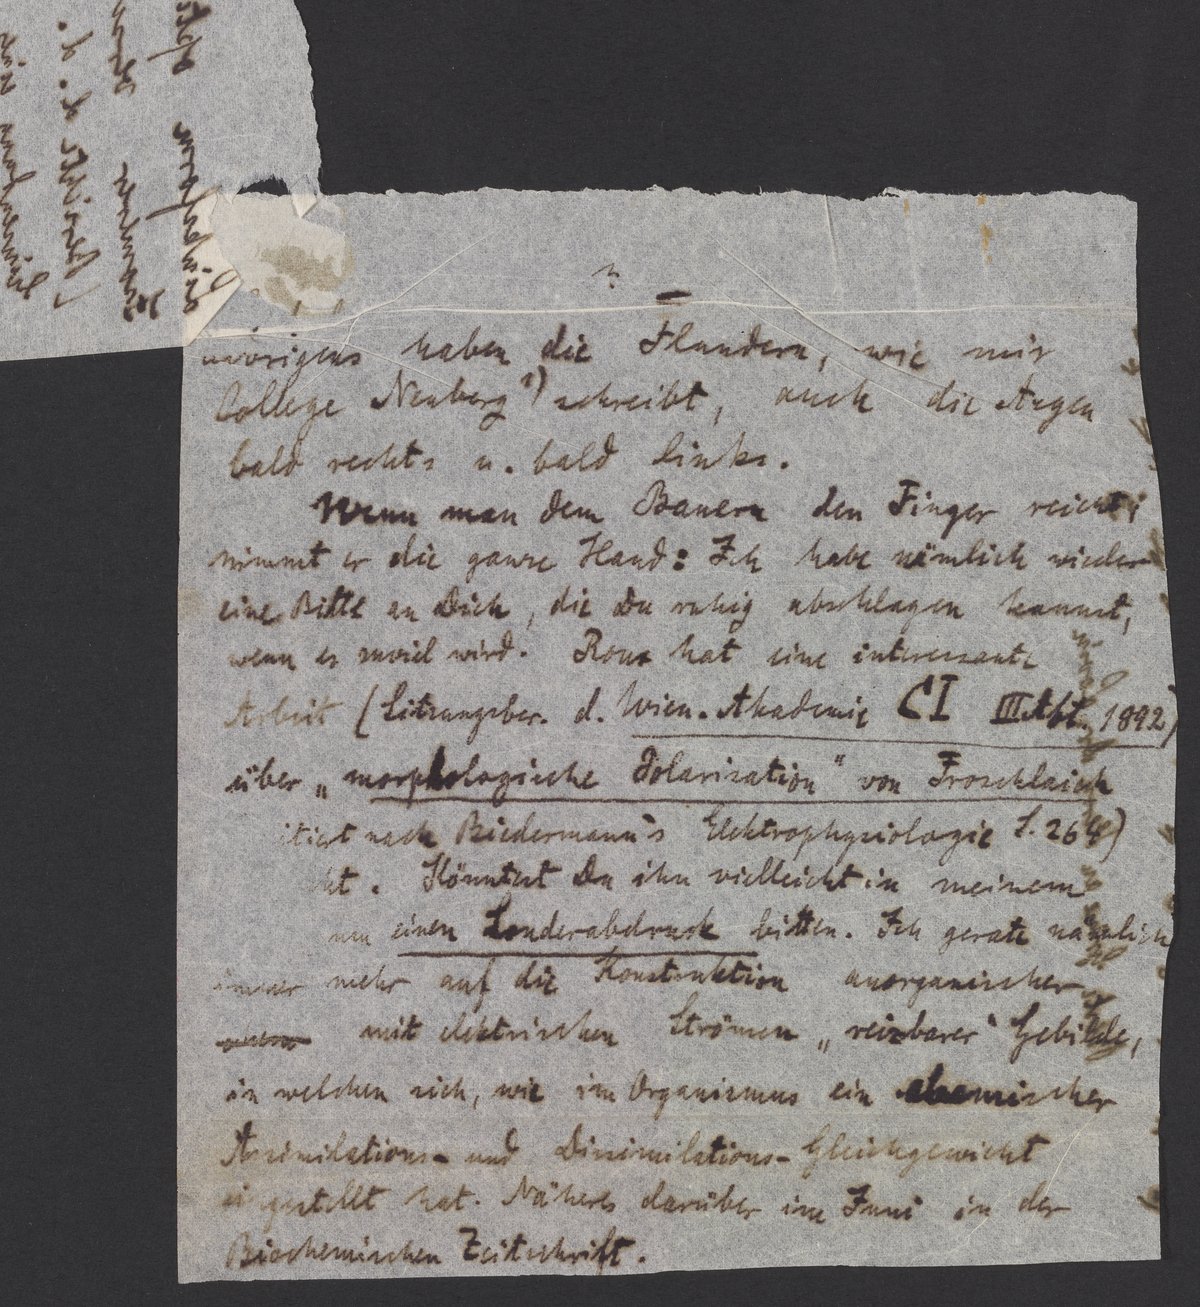 übrigens haben die Flundern, wie mir
College Neuberg 1) schreibt, auch die Augen
bald rechts u. bald links.
Wenn man dem Bauern den Finger reicht,
nimmt er die ganze Hand: Ich habe nämlich wieder
eine Bitte an Dich, die Du ruhig abschlagen kannst,
wenn es zuviel wird. Roux hat eine interessante
Arbeit (Sitzungsber. d. Wien. Akademie CI III Abt. 1892)
über „morphologische Polarisation" von Froschlaich
itiert nach Biedermann's Elektrophysiologie S. 264)
cht. Könntest Du ihn vielleicht in meinem
men einen Sonderabdruck bitten. Ich gerate nämlich
immer mehr auf die Konstruktion anorganischer
mit elektrischen Strömen „reizbarer" Gebilde,
in welchen sich, wie im Organismus ein chemischer
Assimilations- und Dissimilations-Gleichgewicht
ei gestellt hat. Näheres darüber im Juni in der
Biochemischen Zeitschrift.